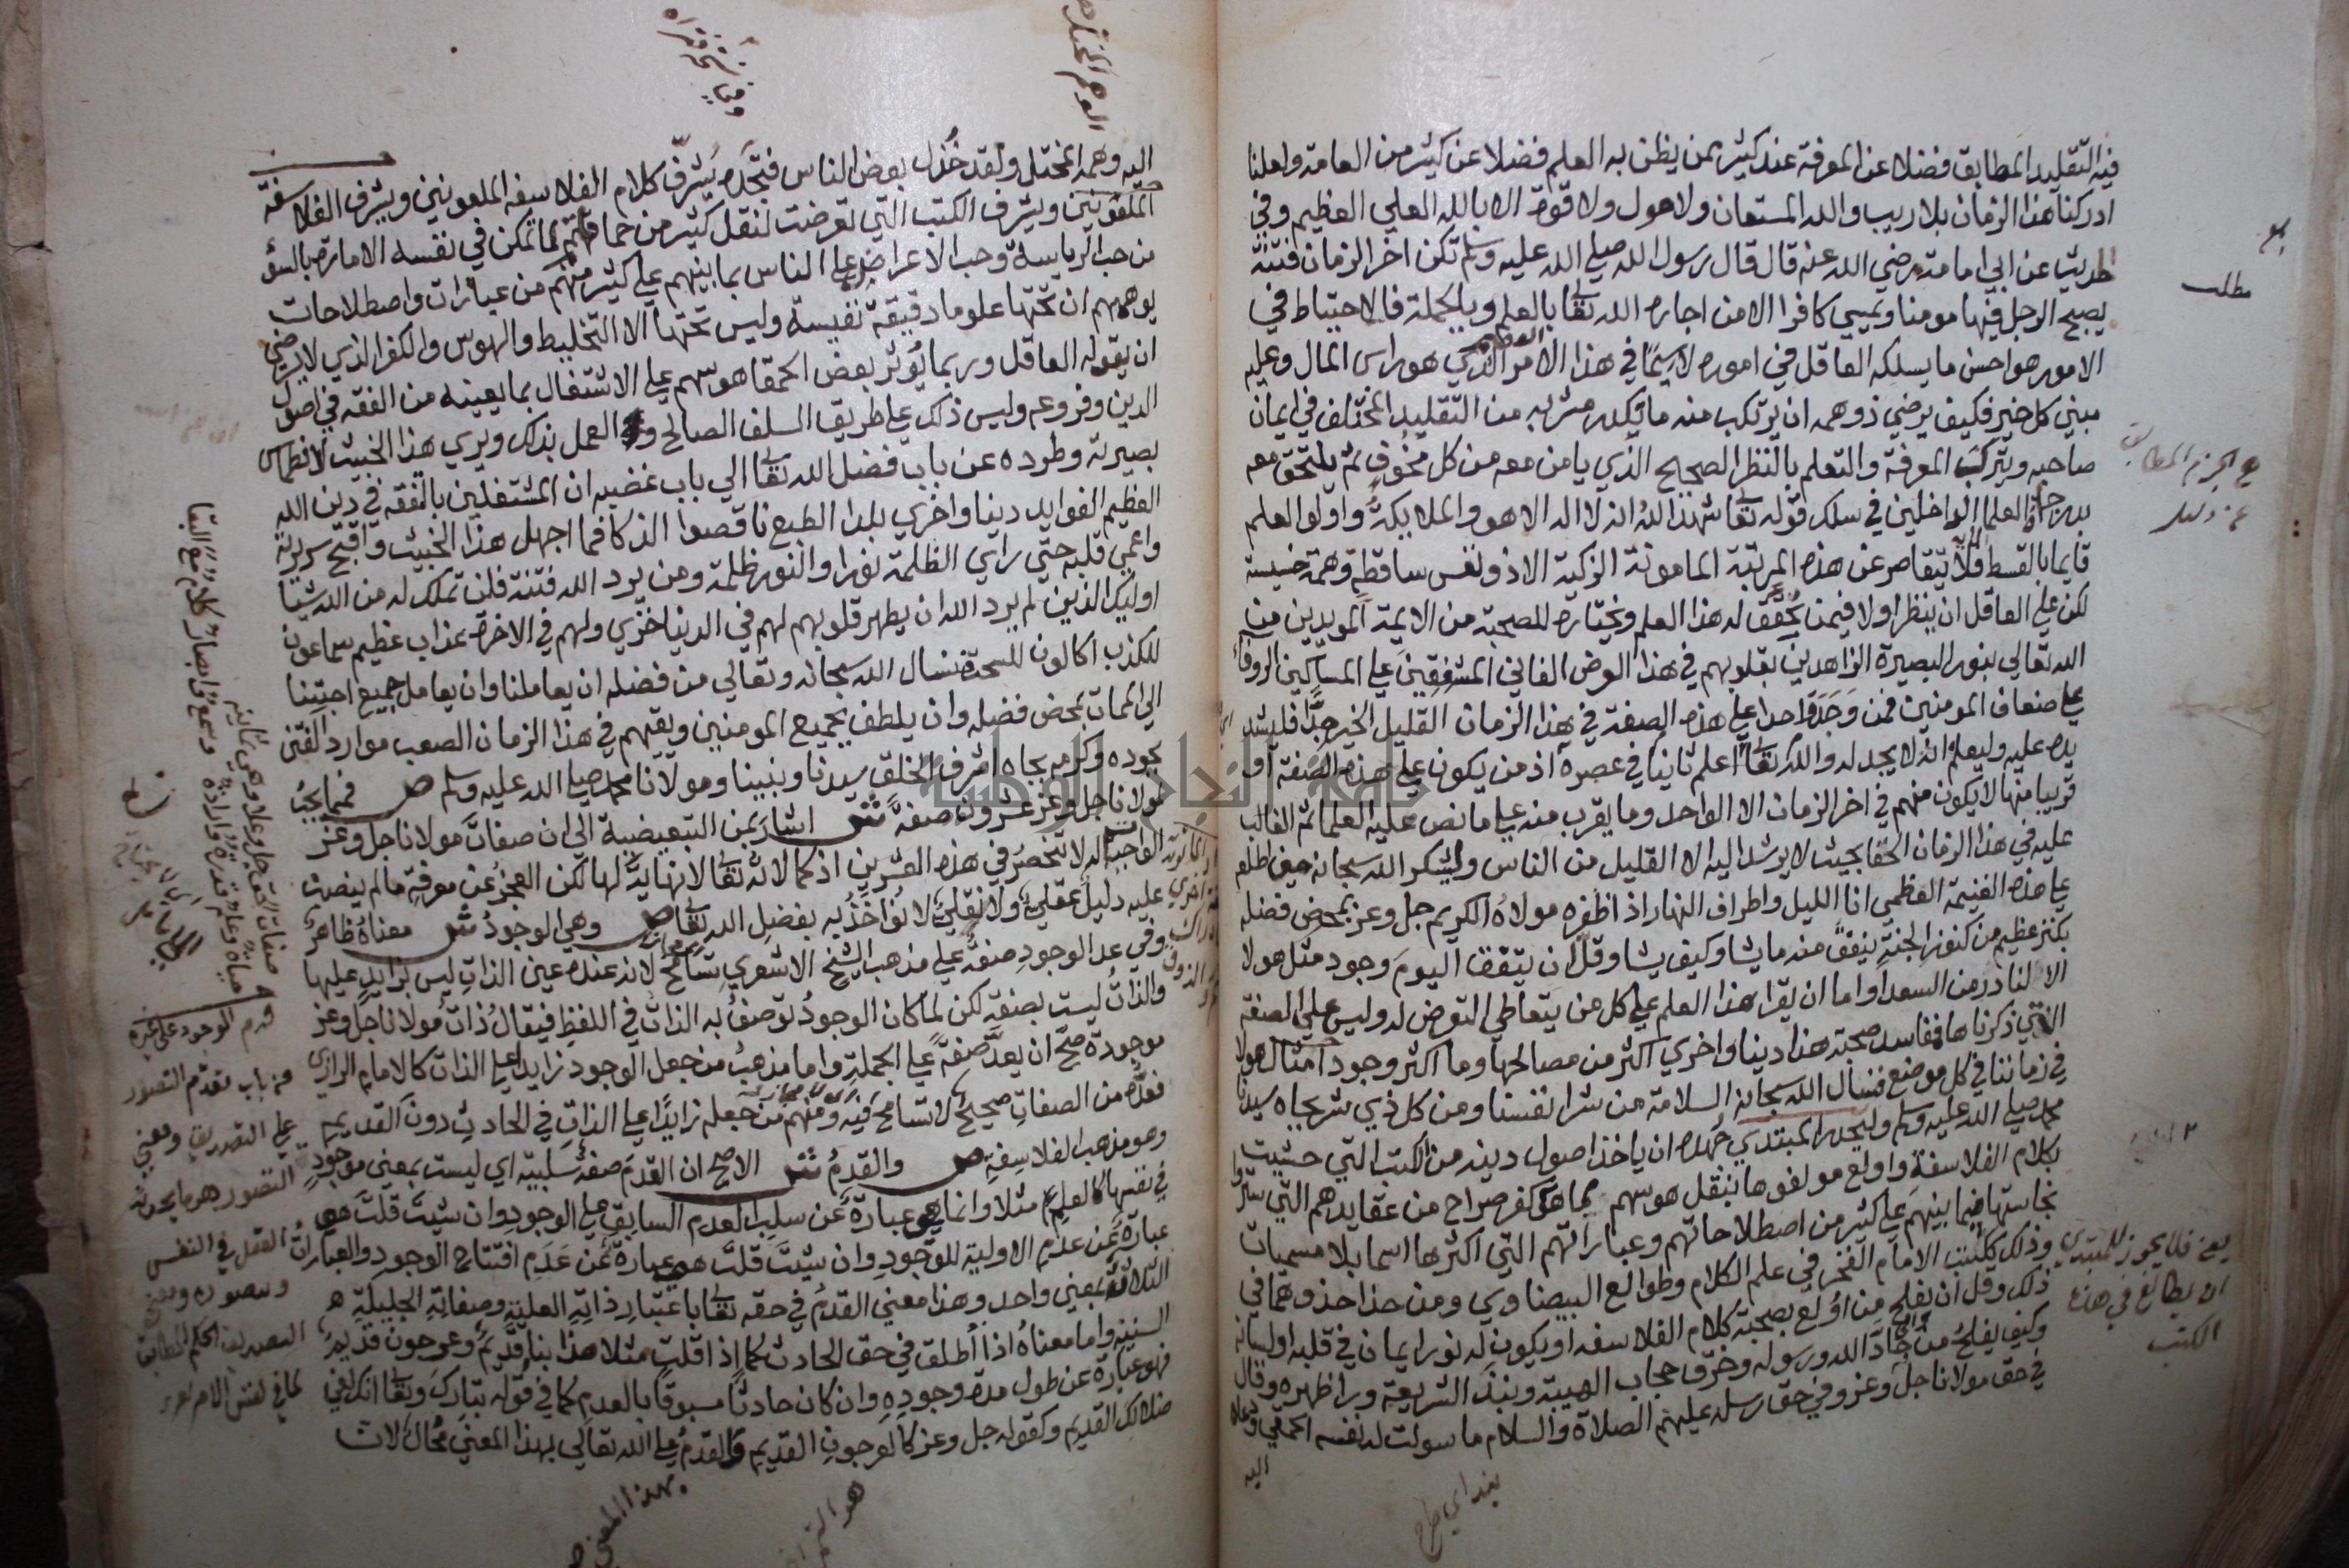 فيه التقليد المطابق فضلا عن المعرفة عند كثير ممن يظن به العلم فضلا عن كثير من العامة ولعلنا
ادركنا هذا الزمان بلا ريب والله المستعان ولا حول ولا قوة الا بالله العلي العظيم وفي
الحديث عن ابي امامة رضي الله عنه قال قال رسول الله صلي الله عليه وسلم تكن اخر الزمان فتنة
يصبح الرجل فيها مومنا ويمسي كافرا الا من اجاره الله تعا بالعلم وبالجملة فالاحتياط في
الامور هو احسن ما يسلكه العاقل في اموره لا سيما في هذا الامر الذي هو راس المال وعليه
مبني كل خير فكيف يرضي ذو همه ان يرتكب منه ما يكدر مشربه من التقليد المختلف في ايمان
صاحبه ويترك المعرفة والتعلم بالنظر الصحيح الذي يامن معه من كل مخوف ثم يلتحق معه
بدرجة العلما الداخلين في سلك قوله تعا شهد الله انه لا اله الا هو والملايكة واولوا العلم
قايما بالقسط فلا يتقاصر عن هذه المرتبة المامونة الزكية الا ذو نفس ساقطة وهمة خسيسة
لكن علي العاقل ان ينظر اولا فيمن يحقق له هذا العلم ويختاره للصحبة من الايمة المويدين من
الله تعالي بنور البصيرة الزاهدين بقلوبهم في هذا العرض الفاني المشفقين علي المساكين الروفاء
علي ضعاف المومنين فمن وجد واحدا علي هذه الصفة في هذا الزمان القليل الخير جدا فليشد
يده عليه وليعلم انه لا يجد له والله تعا اعلم ثانيا في عصره اذ من يكون علي هذه الصفة او
قريبا منها لا يكون منهم في اخر الزمان الا الواحد وما يقرب منه علي ما نص عليه العلما ثم الغالب
عليه في هذا الزمان الخفا بحيث لا يرشد اليه الا القليل من الناس وليشكر الله سبحانه حين اطلعه
علي هذه الغنيمة العظمي انا الليل واطراف النهار اذ اظفره مولاه الكريم جل وعز بمحض فضله
بكنز عظيم من كنوز الجنة ينفق منه ما يشا وكيف يشا وقل ان يتفق اليوم وجود مثل هولا
الا لنادر من السعدا واما ان يقرا هذا العلم علي كل من يتعاطي التعرض له وليس علي الصفة
التي ذكرناها فمفاسد صحبة هذا دينا واخري اكثر من مصالحها وما اكثر وجود امثال هولا
في زماننا في كل موضع فنسال الله سبحانه السلامة من شر انفسنا ومن كل ذي شر بجاه سيدنا
محمد صلي الله عليه وسلم وليحذر المبتدي جهده ان ياخذ اصول دينه من الكتب التي حشيت
بكلام الفلاسفة واولع مولفوها بنقل هوسهم بما هو كفر صراح من عقايدهم التي ستروا
نجاستها فيما بينهم علي كثير من اصطلاحاتهم وعباراتهم التي اكثرها اسما بلا مسميات
وذلك ككتب الامام الفخر في علم الكلام وطوالع البيضاوي ومن حذا حذوهما في
ذلك وقل ان يفلح من اولع بصحبة كلام الفلاسفه او يكون له نور ايمان في قلبه او لسانه
وكيف يفلح من حاد الله ورسوله وخرق حجاب الهيبة ونبذ الشريعة ورا ظهره وقال
في حق مولانا جل وعز وفي حق رسله عليهم الصلاة والسلام ما سولت له نفسه الحمقي ودعاه
اليه
مطلب
يعني فلا يجوز للمبتدي
ان يطالع في هذه
الكتب
اليه وهمه المختل ولقد خذل بعض الناس فتجده يشرف كلام الفلاسفه الملعونين ويشرف الفلاسفة
الملعونين ويشرف الكتب التي تعرضت لنقل كثير من حماقاتهم لما تمكن في نفسه الامارة بالسؤ
من حب الرياسة وحب الاعراض علي الناس بما ينبهم علي كثير منهم من عبارات واصطلاحات
يوهمهم ان تحتها علوما دقيقة نفيسة وليس تحتها الا التخليط والهوس والكفر الذي لا يرضي
ان يقوله العاقل وربما يؤثر بعض الحمقا هوسهم علي الاشتغال بما يعينه من الفقه في اصول
الدين وفروعه وليس ذلك علي طريق السلف الصالح و العمل بذلك ويري هذا الخبيث لانطماس
بصيرته وطرده عن باب فضل الله تعا الي باب غضبه ان المشتغلين بالتفقه في دين الله
العظيم الفوايد دينا واخري بلدا الطبع ناقصوا الذكا فما اجهل هذا الخبيث واقبح سريرته
واعمي قلبه حتي راي الظلمة نورا والنور ظلمة ومن يرد الله فتنته فلن تملك له من الله شيا
اوليك الذين لم يرد الله ان يطهر قلوبهم لهم في الدنيا خزي ولهم في الاخرة عذاب عظيم سماعون
للكذب اكالون للسحت نسال الله سبحانه وتعالي من فضله ان يعاملنا وان يعامل جميع احبتنا
الي الممات بمحض فضله وان يلطف بجميع المومنين ويقيهم في هذا الزمان الصعب موارد الفتن
بجوده وكرمه بجاه اشرف الخلق سيدنا ونبينا ومولانا محمد صلي الله عليه وسلم ص فمما يجب
لمولانا جل وعز عشرون صفة ش اشار بمن التبعيضية الي ان صفات مولانا جل وعز
الواجبة له لا تنحصر في هذه العشرين اذ كمالاته تعا لا نهاية لها لكن العجز عن معرفة ما لم ينصب
عليه دليل عقلي ولا نقلي لا نواخذ به بفضل الله تعا ص وهي الوجود ش معناه ظاهر
وفي عد الوجود صفة علي مذهب الشيخ الاشعري تسامح لانه عنده عين الذات ليس بزايد عليها
والذات ليست بصفة لكن لما كان الوجود توصف به الذات في اللفظ فيقال ذات مولانا جل وعز
موجودة صح ان يعد صفة علي الجملة واما مذهب من جعل الوجود زايدا علي الذات كالامام الرازي
فعده من الصفات صحيح لا تسامح فيه ومنهم من جعله زايدا علي الذات في الحادث دون القديم
وهو مذهب الفلاسفة ص والقدم ش الاصح ان القدم صفة سلبية اي ليست بمعني موجود
في نفسها كالعلم مثلا وانما هو عبارة عن سلب العدم السابق علي الوجود وان شيت قلت هو
عبارة عن عدم الاولية للوجود وان شيت قلت هو عبارة عن عدم افتتاح الوجود والعبارات
الثلاثة بمعني واحد وهذا معني القدم في حقه تعا باعتبار ذاته العلية وصفاته الجليلة
السنية واما معناه اذا اطلق في حق الحادث كما اذا قلت مثلا هذا بنا قديم وعرجون قديم
فهو عبارة عن طول مدة وجوده وان كان حادثا مسبوقا بالعدم كما في قوله تبارك وتعا انك لفي
ضلالك القديم وكقوله جل وعز كالعرجون القديم والقدم علي الله تعالي بهذا المعني محال لان
قدم الوجود علي غيره
من باب تقدم التصور
علي التصديق ومعني